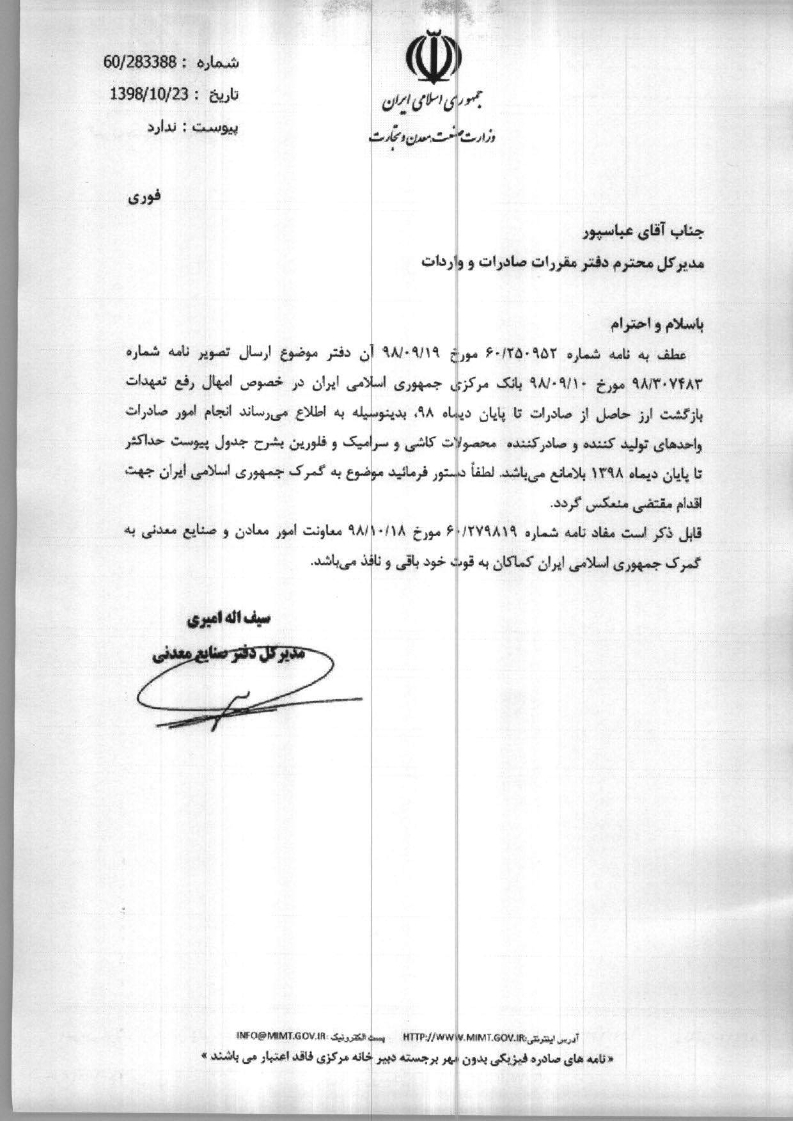 جمهوری اسلامی ایران
وزارت صنعت، معدن و تجارت
شماره : 60/283388
تاریخ : 1398/10/23
پیوست : ندارد
فوری
جناب آقای عباسپور
مدیرکل محترم دفتر مقررات صادرات و واردات
باسلام و احترام
عطف به نامه شماره ۶۰/۲۵۰۹۵۲ مورخ ۹۸/۰۹/۱۹ آن دفتر موضوع ارسال تصویر نامه شماره
۹۸/۳۰۷۴۸۳ مورخ ۹۸/۰۹/۱۰ بانک مرکزی جمهوری اسلامی ایران در خصوص امهال رفع تعهدات
بازگشت ارز حاصل از صادرات تا پایان دیماه ۹۸، بدینوسیله به اطلاع می‌رساند انجام امور صادرات
واحدهای تولید کننده و صادرکننده محصولات کاشی و سرامیک و فلورین بشرح جدول پیوست حداکثر
تا پایان دیماه ۱۳۹۸ بلامانع می‌باشد. لطفاً دستور فرمائید موضوع به گمرک جمهوری اسلامی ایران جهت
اقدام مقتضی منعکس گردد.
قابل ذکر است مفاد نامه شماره ۶۰/۲۷۹۸۱۹ مورخ ۹۸/۱۰/۱۸ معاونت امور معادن و صنایع معدنی به
گمرک جمهوری اسلامی ایران کماکان به قوت خود باقی و نافذ می‌باشد.
سیف اله امیری
مدیرکل دفتر صنایع معدنی
آدرس اینترنتی:HTTP://WWW.MIMT.GOV.IR پست الکترونیک :INFO@MIMT.GOV.IR
« نامه های صادره فیزیکی بدون مهر برجسته دبیر خانه مرکزی فاقد اعتبار می باشند »